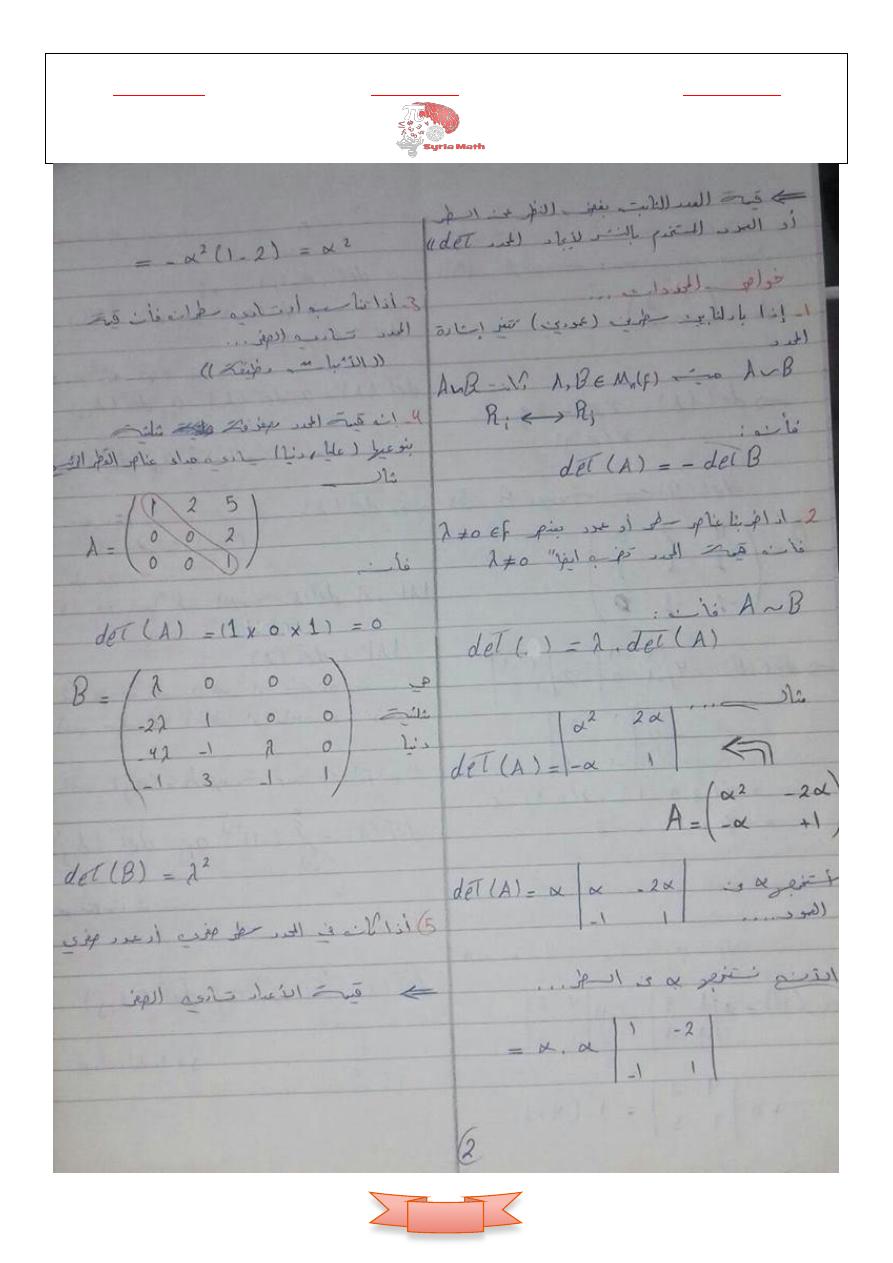 Syria Math
⇐ قيمة العدد الثابت بغض النظر عن السطر
أو العمود المستخدم بالنشر لإيجاد المحدد det))
خواص المحددات ...
1- إذا بادلنا بين سطرين (عمودين) تتغير إشارة
المحدد
A∼B حيث A, B ∈ Mn(F) A∼B
Ri ⟷ Rj
فأنه :
det (A) = - det B
2- اذا ضربنا عناصر سطر أو عمود بعنصر λ ≠ 0 ∈ F
فأنه قيمة المحدد تضرب ايضا" λ ≠ 0
A ∼ B فأنه :
det (.) = λ . det (A)
مثال ....
det (A) = | α² 2α |
| -α 1 |
A = ( α² -2α )
( -α +1 )
نستخرج α من
العمود ....
det (A) = α | α -2α |
| -1 1 |
الآن نستخرج α من السطر ...
= α . α | 1 -2 |
| -1 1 |
= - α² (1 - 2) = α²
3- أذا تناسب أو تساوى سطران فأن قيمة
المحدد تساوي الصفر ...
((الأثبات وظيفة))
4- إنه قيمة المحدد مصفوفة مثلثية
بنوعيها (عليا، دنيا) يساوي جداء عناصر القطر الرئيسي
مثال
A = ( 1 2 5 )
( 0 0 2 )
( 0 0 1 )
فأنه
det (A) = (1 × 0 × 1) = 0
B = ( λ 0 0 0 ) هي
( -2λ 1 0 0 ) مثلثية
( -4λ -1 λ 0 ) دنيا
( -1 3 -1 1 )
det (B) = λ²
5) أذا كان في المحدد سطر صفري أو عمود صفري
⇐ قيمة الأعداد تساوي الصفر
2